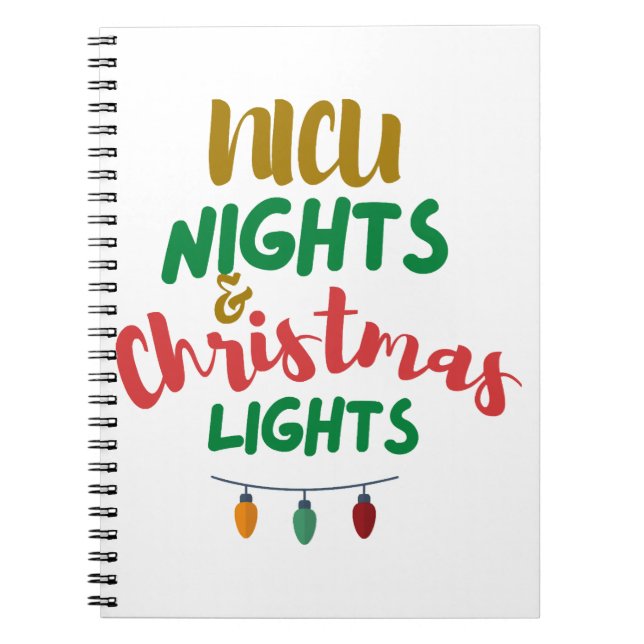 NICU
NIGHTS
&
Christmas
LIGHTS